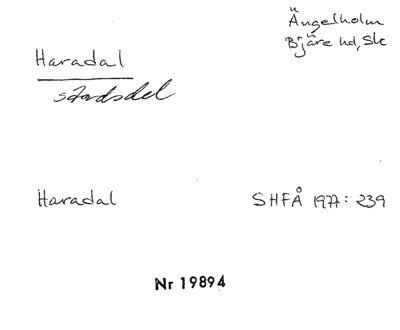 Ängelholm
Bjäre hd, Sk
Haradal
stadsdel
Haradal SHFÅ 1977: 239
Nr 19894